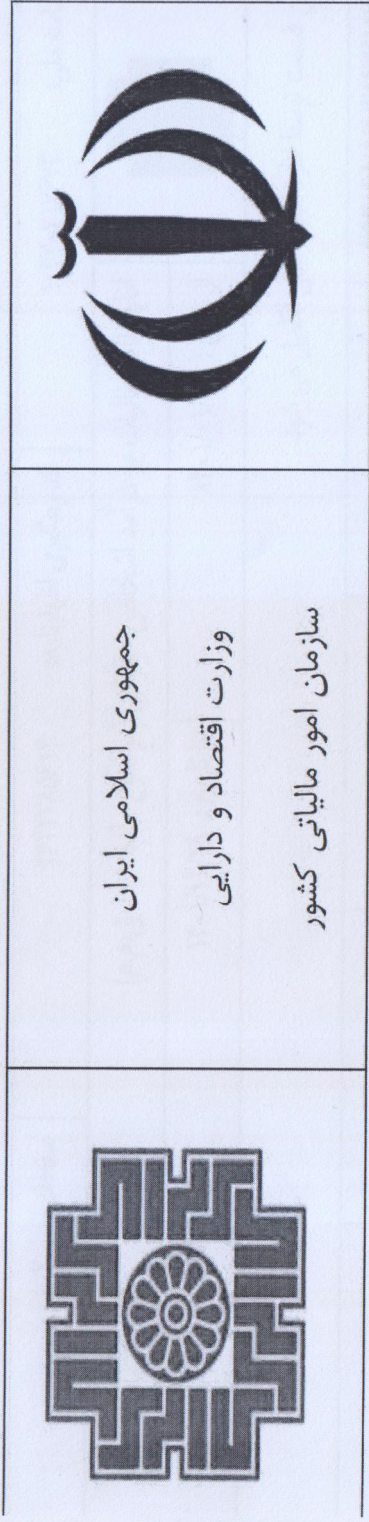 جمهوری اسلامی ایران
وزارت اقتصاد و دارایی
سازمان امور مالیاتی کشور